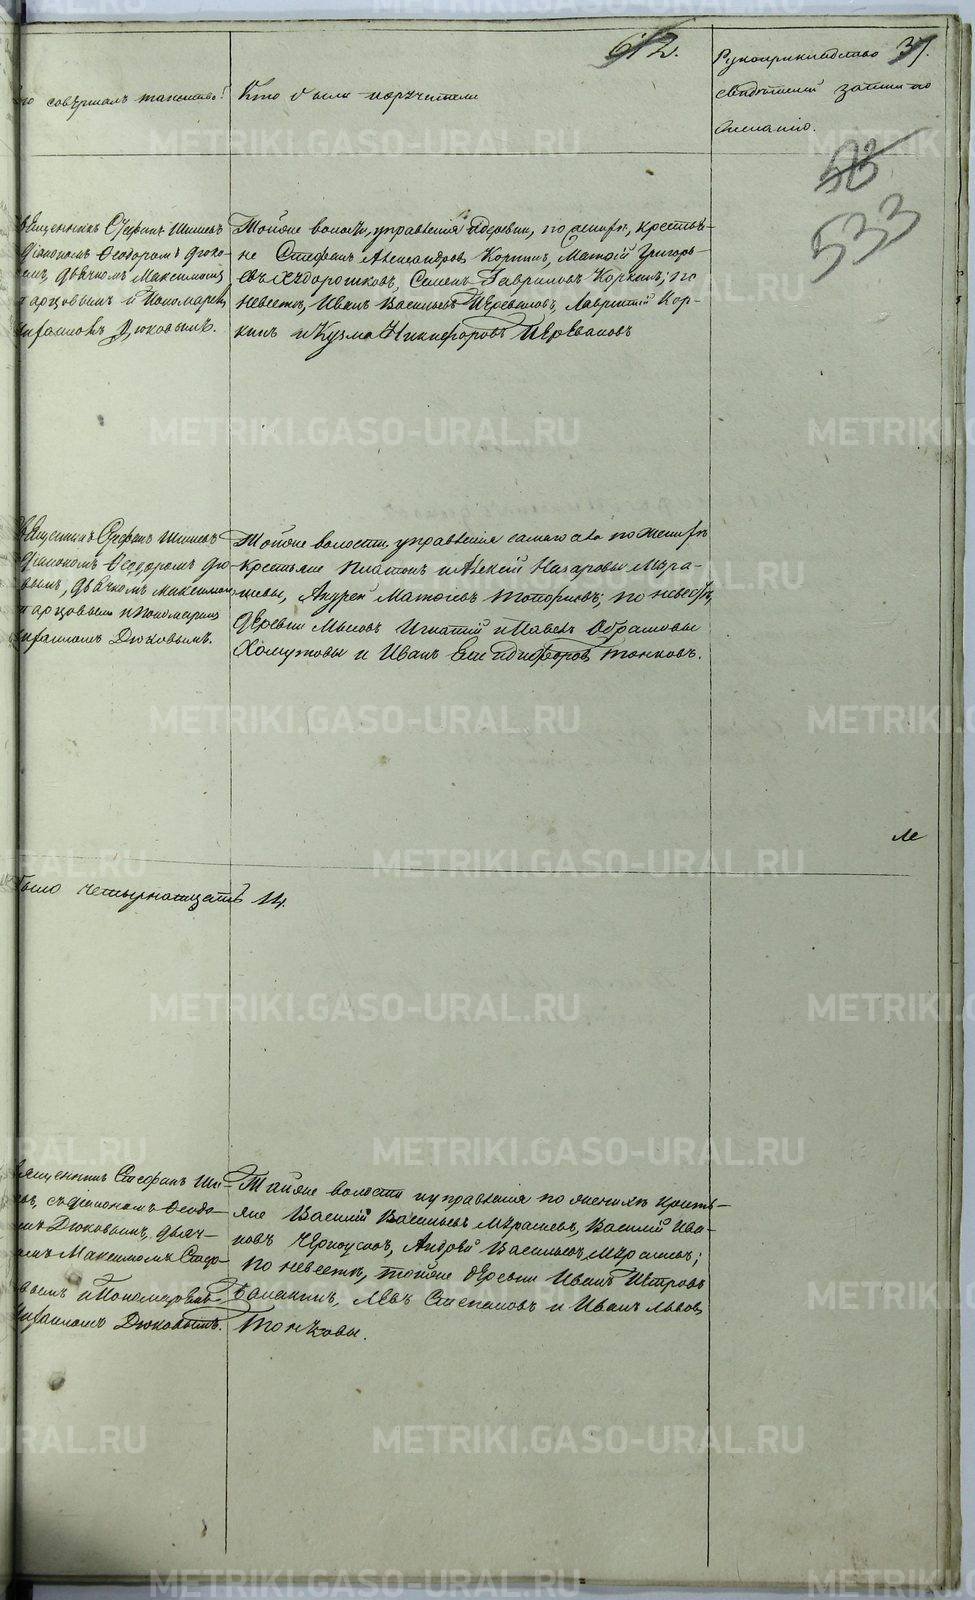 612.
37.
Кто совершалъ таинство?
Кто были поручители
Рукоприкладство
свидетелей записи по
желанію.
53
533
Священникъ Стефанъ
Діакономъ Ѳеодоромъ Дюко-
дьячкомъ Максимомъ
и Пономаремъ
Дюковымъ.
Тойже волости, управленія и деревни, по жениху, крестья-
не Стефанъ Александровъ Коркинъ, Матвій Григорь-
евъ Ѳедоротковъ, Семенъ Гавриловъ Коркинъ; по
невестѣ, Иванъ Васильевъ Лаврентій Кор-
кинъ и Кузма Никифоровъ
Священникъ Стефанъ
Діакономъ Ѳеодоромъ Дю-
ковымъ, дьячкомъ Максимомъ
и Пономаремъ
Дюковымъ.
Тойже волости, управленія самаго села по жениху
крестьяне Платонъ и Алексій Назаровы Мура-
шевы, Андрей Матвіевъ Топорковъ; по невестѣ,
деревни Игнатій и Павелъ Абрамовы
Хомутовы и Иванъ Тонковъ.
Ле
было четырнатцать 14.
Священникъ Стефанъ Ши-
съ діакономъ Ѳеодо-
Дюковымъ, дьяч-
комъ Максимомъ
и Пономаремъ
Дюковымъ.
Тойже волости и управленія по жениху кресть-
яне Василій Васильевъ Мурашевъ, Василій Ива-
новъ Черноусовъ, Андрей Васильевъ Мурашевъ;
по невестѣ, тойже деревни Иванъ Петровъ
Балакинъ, Левъ Степановъ и Иванъ Львовъ
Тонковы.
METRIKI.GASO-URAL.RU